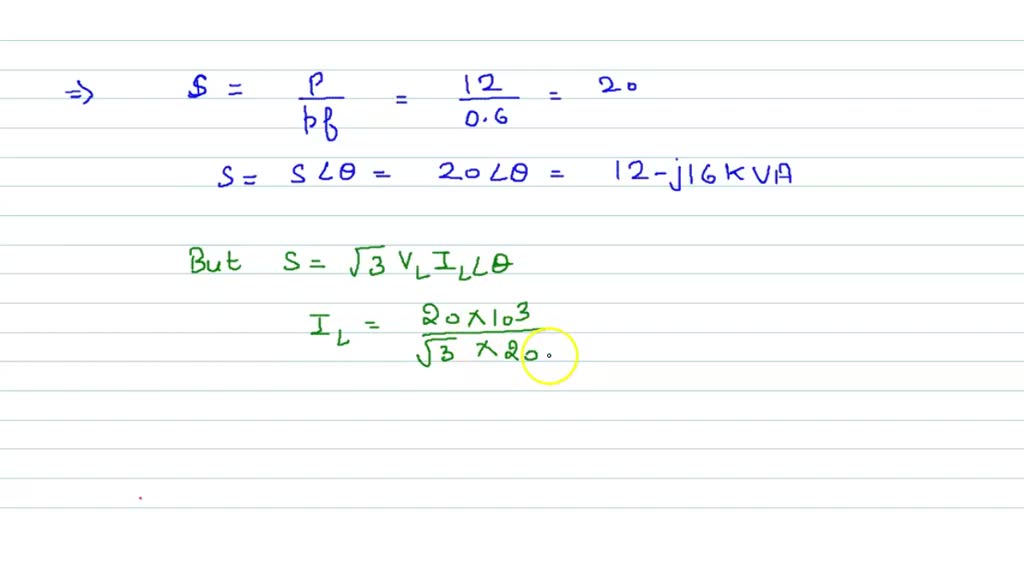 ⇒ S = P/pf = 12/0.6 = 20
S = S∠θ = 20∠θ = 12-j16KVA
But S = √3 V_L I_L∠θ
I_L = 20×10³/√3 ×20